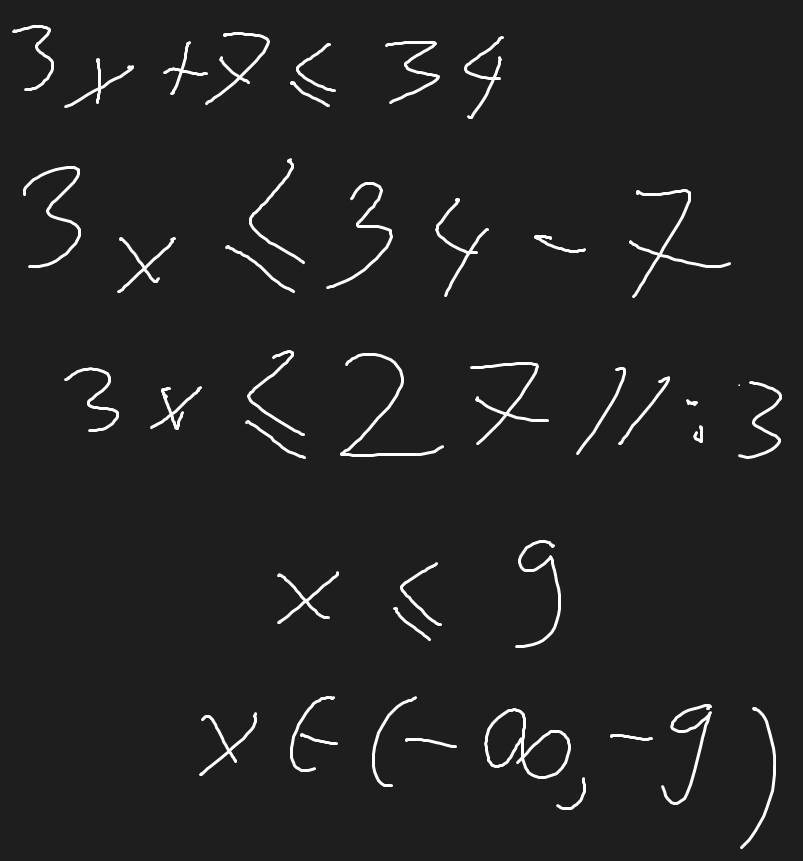 3x+7≤34
3x≤34-7
3x≤27//:3
x≤9
x∈(-∞,-9)